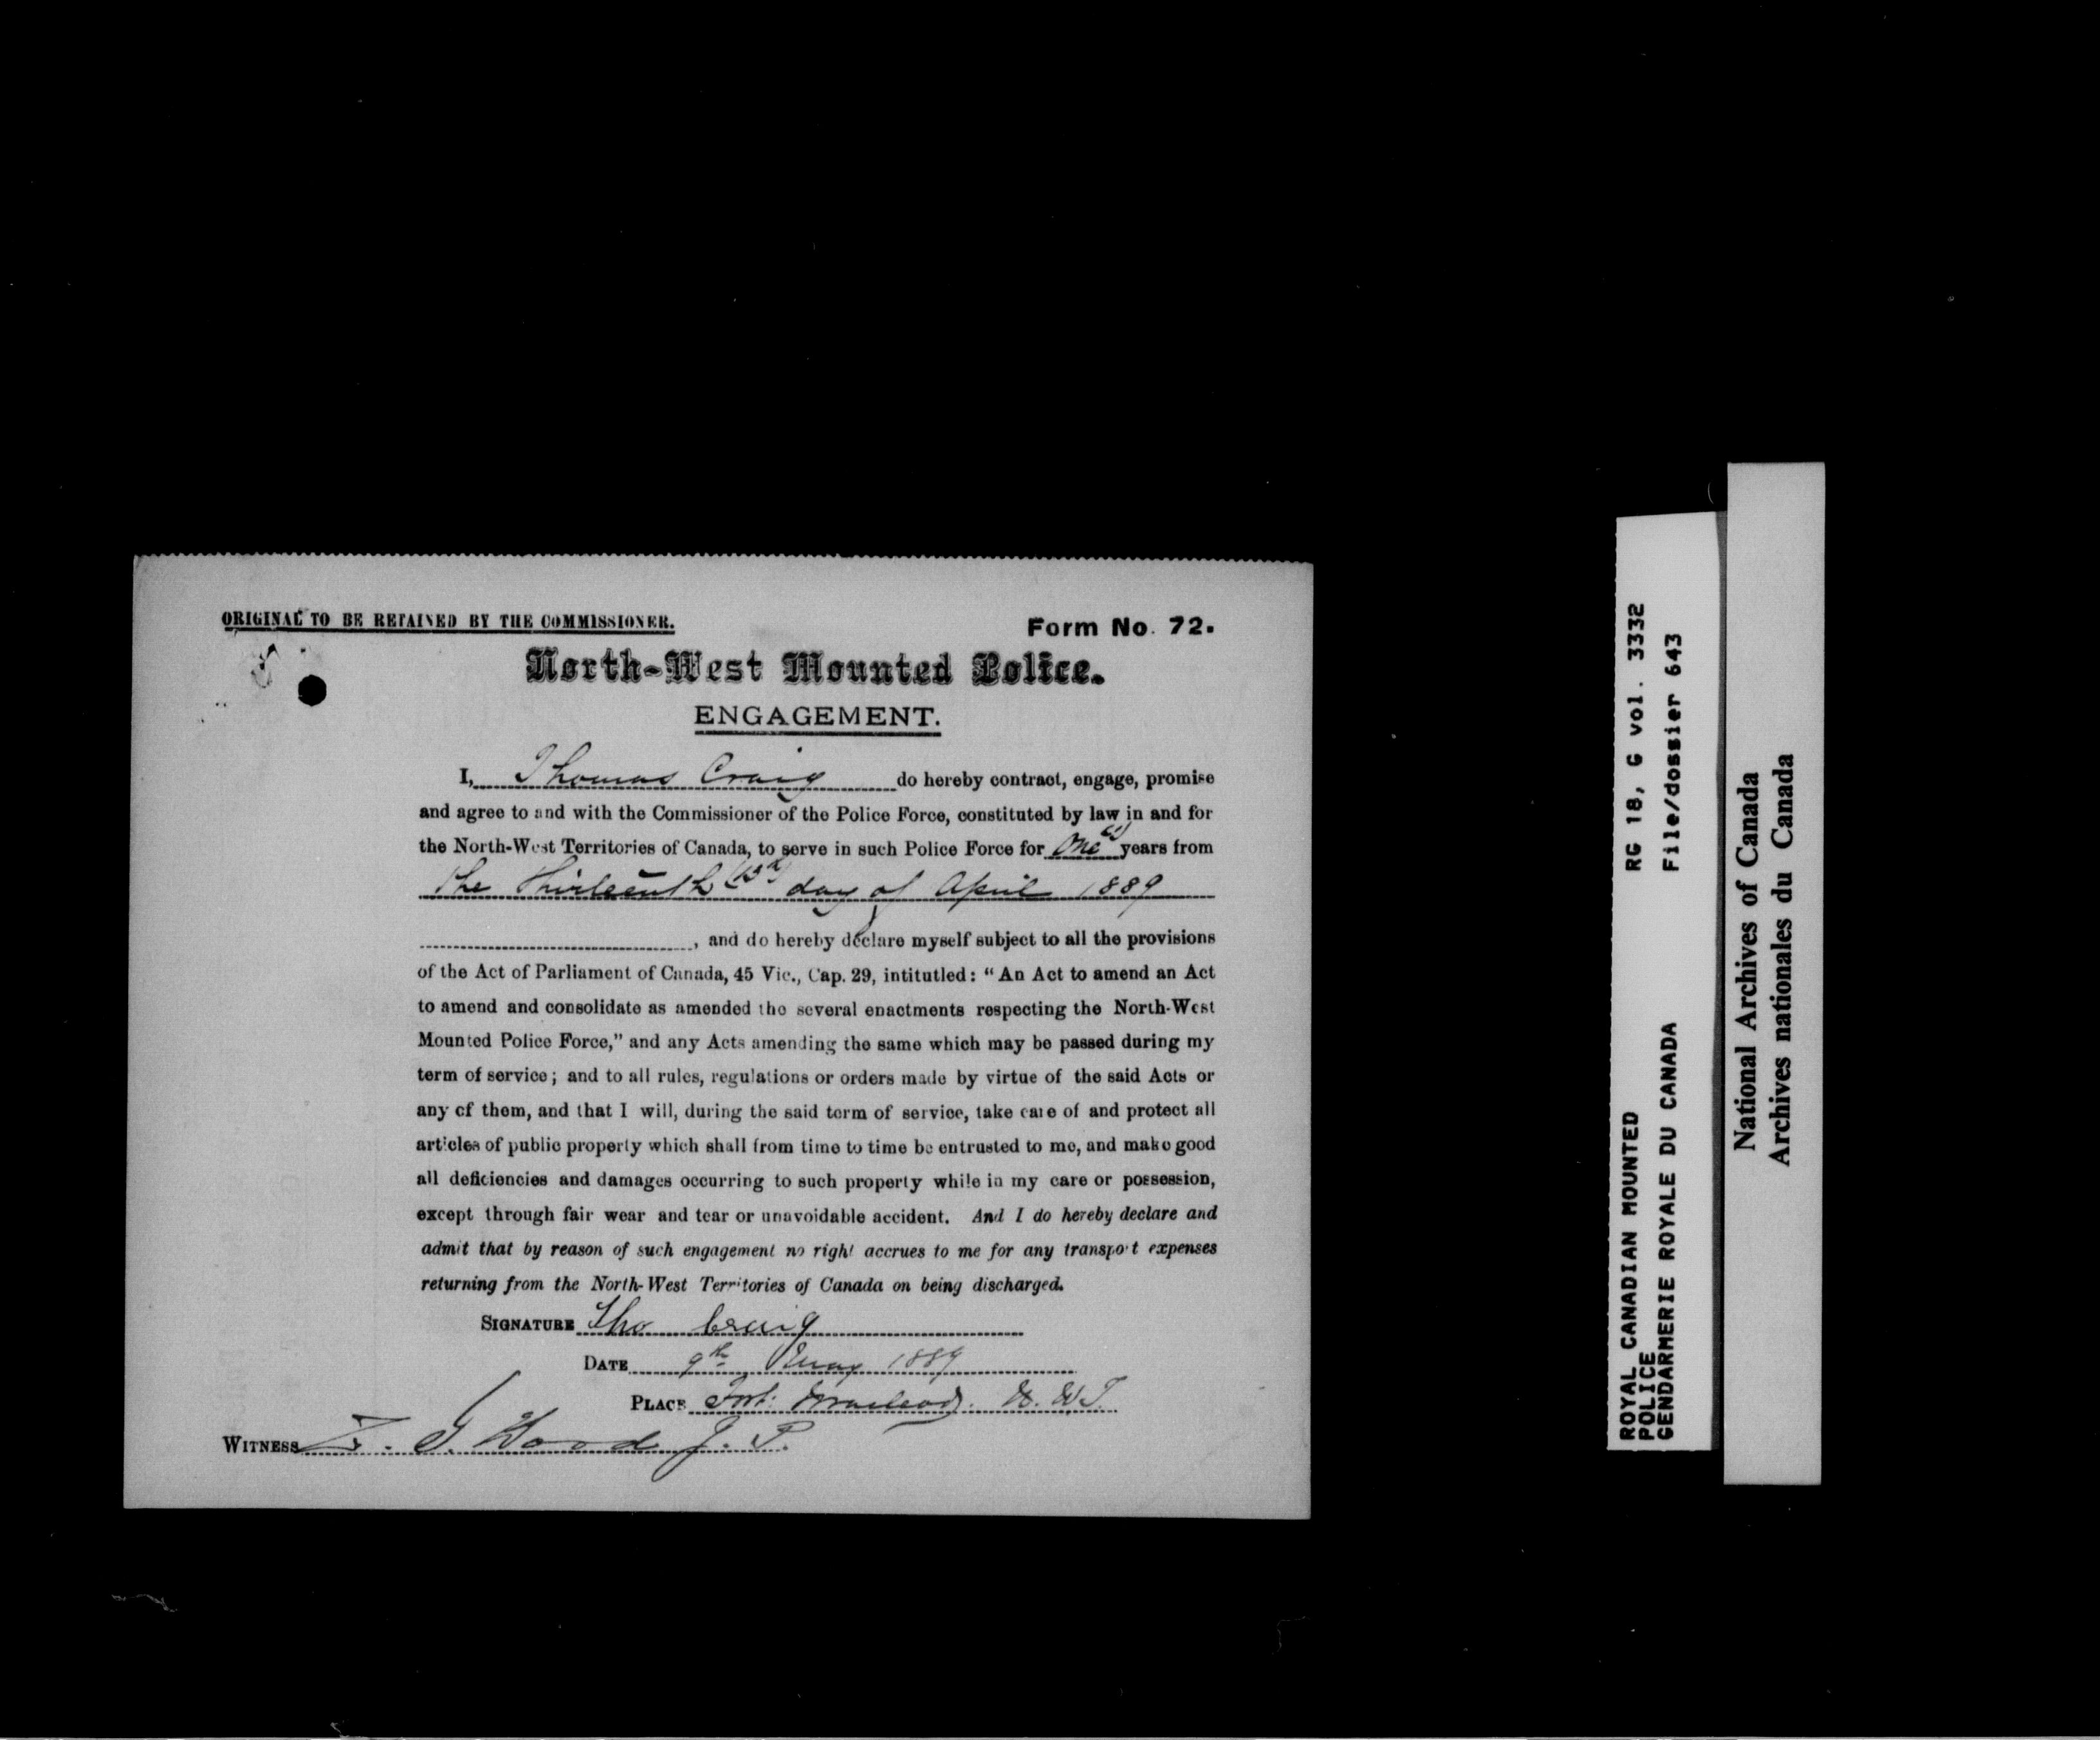 ORIGINAL TO BE RETAINED BY THE COMMISSIONER.
Form No. 72.
North-West Mounted Police.
ENGAGEMENT.
I, Thomas Craig do hereby contract, engage, promise
and agree to and with the Commissioner of the Police Force, constituted by law in and for
the North-West Territories of Canada, to serve in such Police Force for One (1) years from
the Thirteenth (13th) day of April 1889
, and do hereby declare myself subject to all the provisions
of the Act of Parliament of Canada, 45 Vic., Cap. 29, intitutled: "An Act to amend an Act
to amend and consolidate as amended the several enactments respecting the North-West
Mounted Police Force," and any Acts amending the same which may be passed during my
term of service; and to all rules, regulations or orders made by virtue of the said Acts or
any of them, and that I will, during the said term of service, take care of and protect all
articles of public property which shall from time to time be entrusted to me, and make good
all deficiencies and damages occurring to such property while in my care or possession,
except through fair wear and tear or unavoidable accident. And I do hereby declare and
admit that by reason of such engagement no right accrues to me for any transport expenses
returning from the North-West Territories of Canada on being discharged.
SIGNATURE Tho Craig
DATE 9th May 1889
PLACE Fort Macleod. N.W.T.
WITNESS Z. T. Wood J. P.
ROYAL CANADIAN MOUNTED RG 18, G vol. 3332
POLICE
GENDARMERIE ROYALE DU CANADA File/dossier 643
National Archives of Canada
Archives nationales du Canada